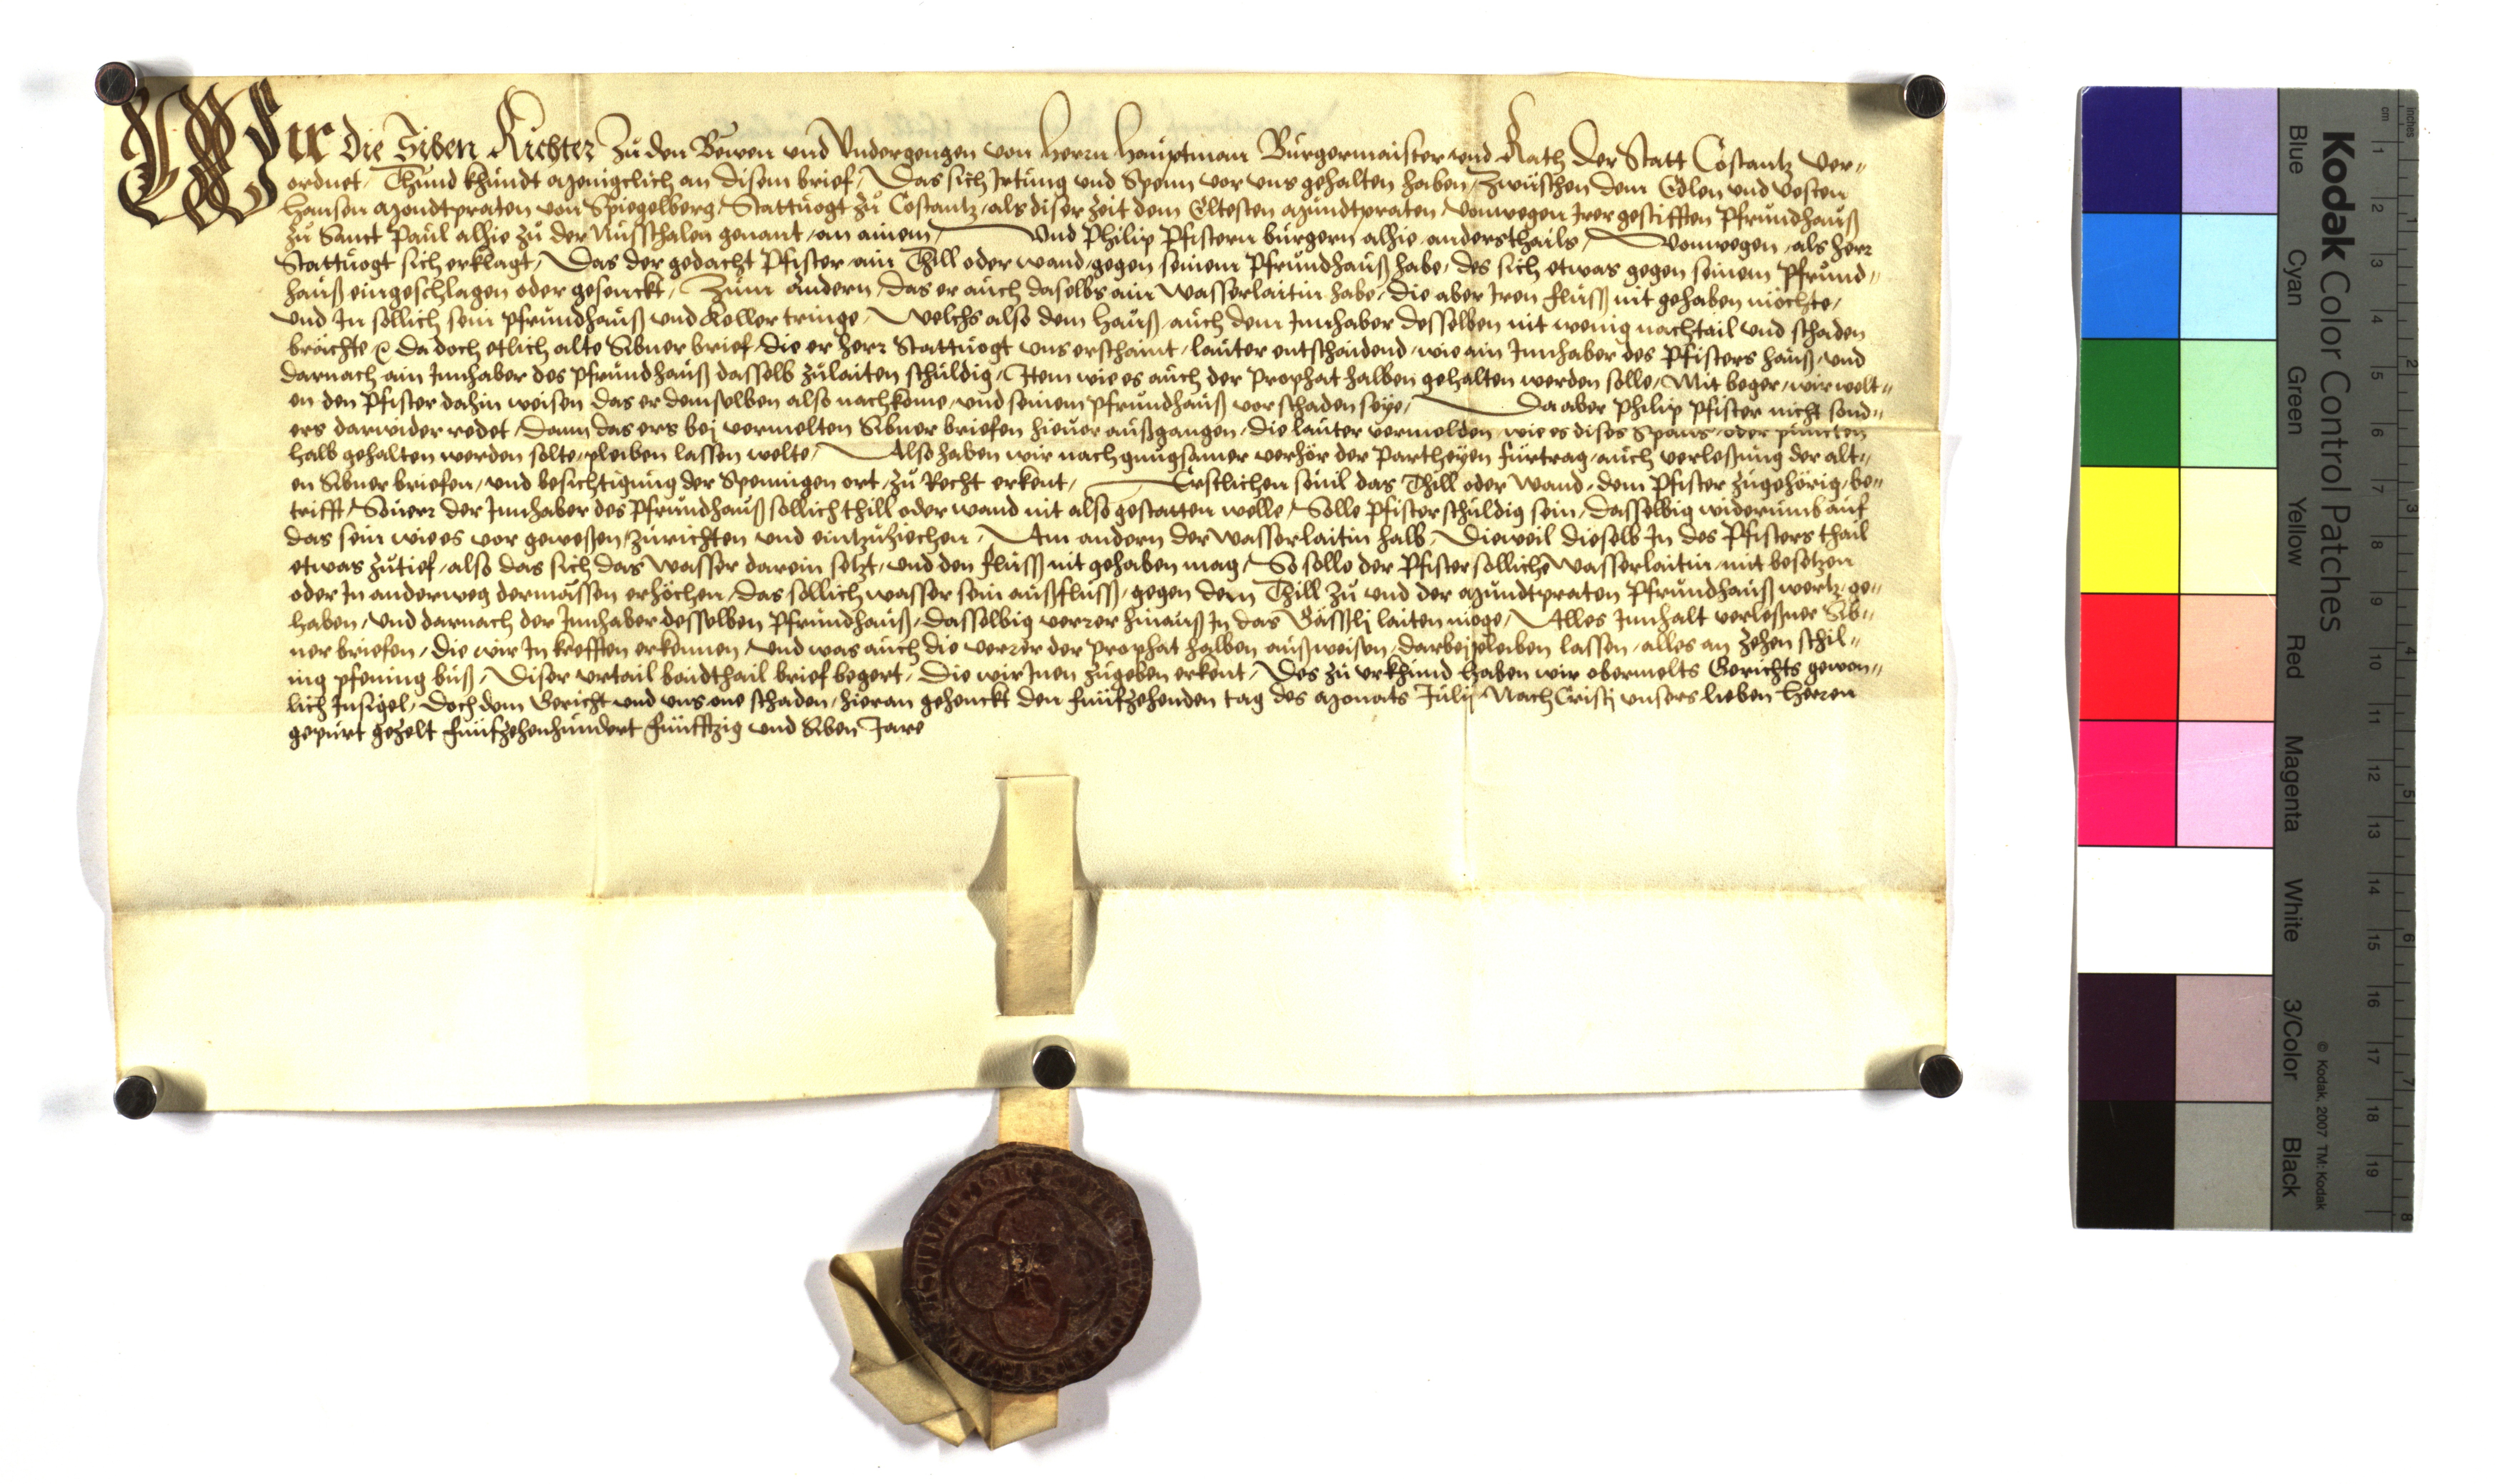 Wir die Siben Richter zu den Bewen und Undergengen von Herrn Hauptman Burgermaister und Rath der Statt Costantz ver-
ordnet, Thund khundt menigclich an disem brief, Das sich Irtung und Spenn vor uns gehalten haben, zwüschen dem Edlen und Vesten
Hansen Mondtpraten von Spiegelberg, Stattvogt zu Costantz, als diser zeit dem Eltesten Mundtpraten, vonwegen Irer gestifften Pfrundhauß
zu Sanct Paul alhie zu der Nusschalen genant, an ainem, Und Philip Pfistern burgern alhie anderthails, Vonwegen, als herr
Stattvogt sich erklagt, Das der gedacht Pfister ain Thill oder wand, gegen seinem Pfrundhauß habe, des sich etwas gegen seinem Pfrund-
hauß eingeschlagen oder gesenckt, Zum andern, das er auch daselbs ain Wasserlaitin habe, die aber Iren fluss nit gehaben möchte,
und In sollich sein pfrundhauß und Keller tringe, Welchs also dem hauß, auch dem Innhaber desselben nit wenig nachtail und schaden
brächte, Da doch etlich alte Sibner brief, die er herr Stattvogt uns erschaint, lauter entschaidend, wie ain Innhaber des Pfisters hauß, und
darnach ain Innhaber des pfrundhauß dasselb zulaiten schuldig, Item wie es auch der Prophat halben gehalten werden solle, Mit beger, wir welt-
en den Pfister dahin weisen das er demselben also nachkome, und seinem pfrundhauß vor schaden seye, Da aber Philip Pfister nicht sond-
ers darwider redet, dann das ers bej vermelten Sibner briefen hievor außgangen, die lauter vermelden, wie es dises Spans, oder puncten
halb gehalten werden solte, pleiben lassen welte, Also haben wir nach gnugsamer verhör der Partheyen fürtrag, auch verleßung der alt-
en Sibner briefen, und besichtigung der Spennigen ort, zu Recht erkent, Erstlichen sovil das Thill oder Wand, dem Pfister zugehörig, be-
trifft, Soverr der Innhaber des Pfrundhauß sollich thill oder wand nit also gestatten welle, Solle Pfister schuldig sein, dasselbig widerumb auf
das sein wie es vor geweßen, zurichten und eintzuziechen, Am andern der wasserlaitin halb, Dieweil dieselb In des Pfisters thail
etwas zutief, also das sich das wasser darein setzt, und den fluss nit gehaben mag, So solle der Pfister solliche wasserlaitin, mit besetzen
oder In anderweg dermassen erhöchen, das sollich wasser sein außfluss, gegen dem Thill zu und der Mundtpraten Pfrundhauß wertz, ge-
haben, und darnach der Innhaber desselben Pfrundhauß, dasselbig verrer hinauß In das Gässlj laiten möge, Alles Innhalt verleßner Sib-
ner briefen, die wir In krefften erkennen, und was auch die verrer der prophat halben außweisen, darbej pleiben lassen, alles an zehen schil-
ing pfening buß, Diser vrtail baidthail brief begert, Die wir Inen zugeben erkent, Des zu vrkhund haben wir obermelts Gerichts gewon-
lich Insigel, doch dem Gericht und uns one schaden, hieran gehenckt den funfzehenden tag des Monats Julij Nach Cristj unsers lieben Herren
gepurt gezelt funfzehenhundert funfftzig und Siben Jare
Kodak Color Control Patches
© Kodak, 2007 TM: Kodak
Blue Cyan Green Yellow Red Magenta White 3/Color Black
cm 1 2 3 4 5 6 7 8 9 10 11 12 13 14 15 16 17 18 19
inches 1 2 3 4 5 6 7 8